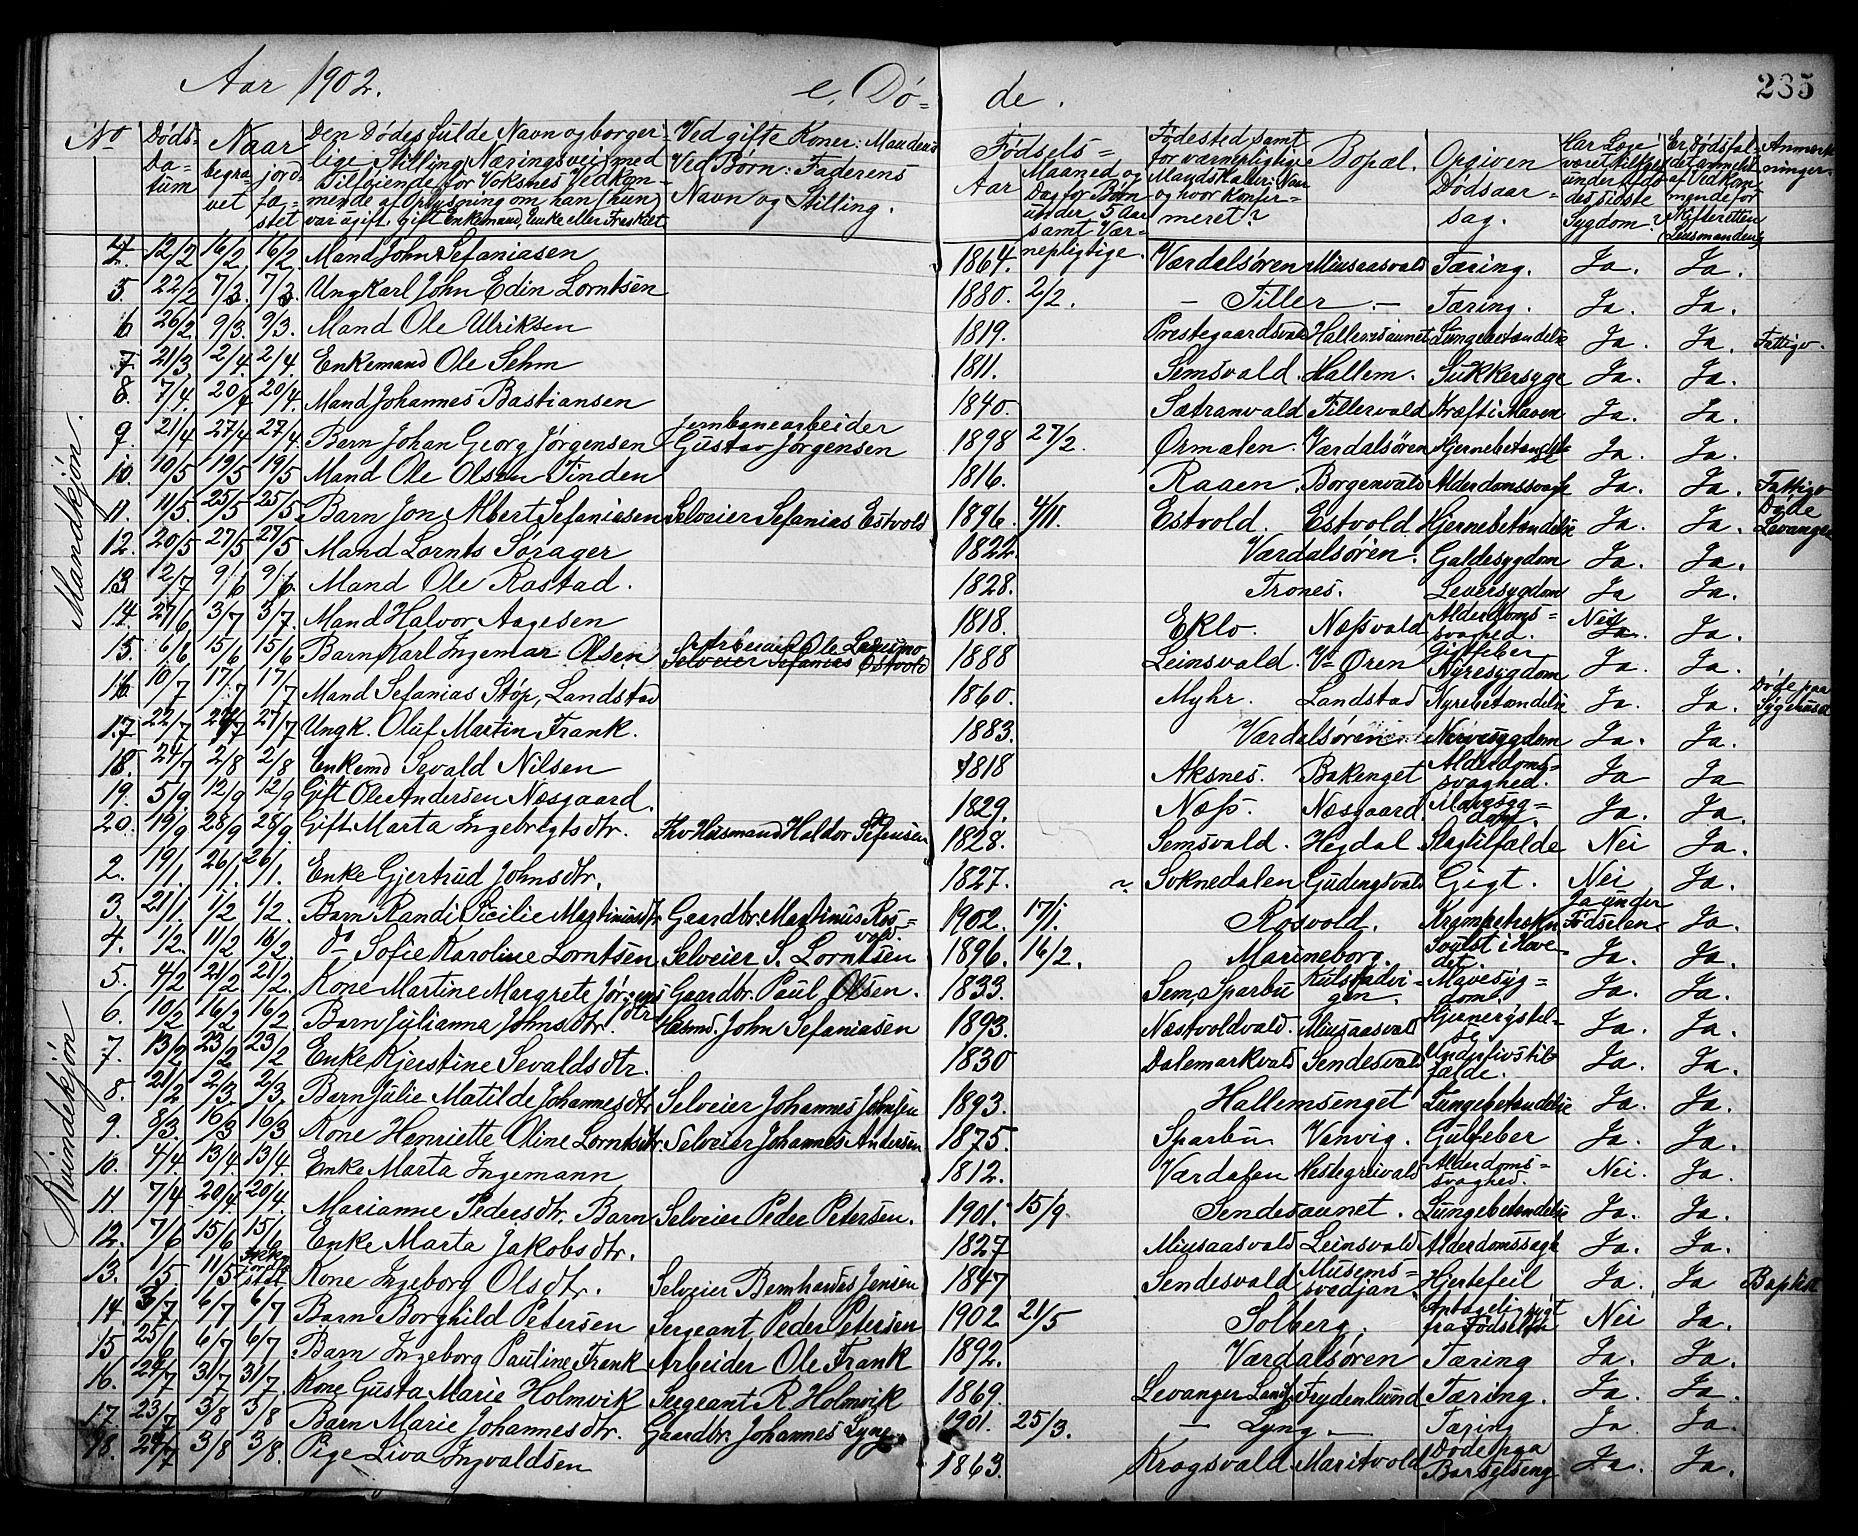 Aar 1902. e, Dø= de. 235
No Døds-Datum Naar begravet jordfæstet Den Dødes fulde Navn og borgerlige Stilling, Næringsvei med Tilføiende for Voksnes Vedkommende af Oplysning om han (hun) var ugift, gift, Enkemand, Enke eller Fraskilt Ved gifte Koner: Mandens Ved Børn: Faderens Navn og Stilling. Fødsels= Aar Maaned og Dag for Børn under 5 Aar samt Værnepligtige. Fødested samt for værnepligtige Mandskaber: Naar og hvor Konfirmeret? Bopæl. Opgiven Dødsaarsag. Har Læge været tilkaldt under Afdødes sidste Sygdom? Er Dødsfaldet anmeldt af Vedkommende for Skifteretten (Lensmanden) Anmærkninger.
Mandkjøn.
4. 12/2 16/2 16/2. Mand John Sefaniasen 1864. Værdalsøren Miusaasvald Tæring. Ja. Ja.
5. 22/2 7/3. 7/3. Ungkarl John Edin Lorntsen 1880. 2/2. — Tiller — Tæring. Ja. Ja.
6 26/2 9/3. 9/3. Mand Ole Ulriksen 1819. Prestegaardsvald Hallemsaunet Lungebetændelse Ja. Ja. Fattigv.
7. 21/3 2/4. 2/4. Enkemand Ole Sehm 1811. Semsvald. Hallem. Sukkersyge Ja. Ja.
8. 7/4. 20/4 20/4. Mand Johannes Bastiansen 1840. Sætranvald Tillervald Kræft i Maven Ja. Ja.
9. 21/4 27/4 27/4. Barn Johan Georg Jørgensen Jernbanearbeider Gustav Jørgensen 1898 27/2. Ørmelen. Værdalsøren Hjernebetændelse Ja. Ja.
10. 10/5 19/5 19/5 Mand Ole Olsen Tinden 1816. Raaen. Borgenvald Alderdomssvagh Ja. Ja. Fattigv
11. 11/5. 25/5 25/5. Barn Jon Albert Sefaniasen Selveier Sefanias Estvold 1896. 4/11. Estvold. Estvold. Hjernebetændelse Ja. Ja. Døde Levanger
12. 20/5 27/5 27/5 Mand Lornts Sørager 1822 Værdalsøren. Galdesygdom Ja. Ja.
13. 2/7 9/6 9/6 Mand Ole Rostad. 1828. Trones. Leversygdom Ja Ja.
14. 27/6 3/7 3/7. Mand Halvor Aagesen 1818. Eklo. Næssvald Alderdoms=svaghed. Nei Ja. Ja.
15. 6/6 15/6 15/6 Barn Karl Ingemar Olsen Arbeider Ole Selveier Sefanias Estvold 1888 Leinsvald. V= Øren Nyresygdom Ja. Ja.
16. 10/7 17/7 17/7 Mand Sefanias Støp, Landstad 1860. Myhr. Landstad Nyrebetændelse Ja. Ja. Døde paa Sygehuset
17. 22/7 27/7 27/7 Ungk. Oluf Martin Frank. 1883. Værdalsøren Nervesygdom Ja. Ja.
18. 24/7 2/8 2/8 Enkemd Sevald Nilsen 1818 Aksnes. Bakenget Alderdoms=svaghed. Ja Ja
19. 5/9 12/9 12/9 Gift Ole Andersen Næsgaard. 1829. Næss. Næsgaard. Mavesyg=dom. Ja. Ja.
20. 19/9 28/9 28/9. Gift Marta Ingebrigtsdtr. Fhv Husmand Haldor 1828. Semsvald. Hegdal Slagtilfælde Nei Ja.
Kvindekjøn
2. 19/1. 26/1. 26/1. Enke Gjertrud Johnsdtr. 1827. Soknedalen Gudingsvald Gigt. Nei Ja.
3. 21/1. 1/2. 1/2. Barn Randi Cicilie Martinusdtr Gaardbr. Martinus Ros=vold. 1902. 17/1. Rosvold. Ja under Fødselen Ja.
4. 1/2. 11/2 16/2. do Sofie Karoline Lorntsen Selveier S. Lorntsen 1896. 16/2. Marineborg. Svulst i Hove-det Ja. Ja.
5. 4/2 21/2. 21/2. Kone Martine Margrete Jørgensdtr Gaardbr. Paul Olsen. 1833. Sem, Sparbu Kulstadvi-gen. Mavesyg=dom Ja. Ja.
6. 10/2 16/2 16/2 Barn Julianna Johnsdtr. Husmd. John Sefaniasen 1893. Næstvoldvald. Miusaasvald Ja. Ja.
7. 13/2 23/2 23/2 Enke Kjerstine Sevaldsdtr. 1830 Dalemarkvald Sendesvald Underlivstil=fælde. Ja. Ja.
8. 21/2 2/3. 2/3. Barn Julie Matilde Johannesdtr Selveier Johannes Johnsen 1893. Hallemsenget Lungebetændelse Ja. Ja.
9. 8/3 16/3 16/3 Kone Henriette Oline Lorntsdtr. Selveier Johannes Andersen 1875. Sparbu Vanvig. Gulfeber Ja. Ja.
10. 4/4 13/4 13/4. Enke Marta Ingemann 1812. Værdalen Hestegreivald Alderdoms=svaghed. Nei. Ja.
11. 7/4. 20/4. 20/4. Marianne Pedersdtr. Barn Selveier Peder Petersen. 1901. 15/9 Sendesaunet. Lungebetændelse Ja. Ja.
12. 7/6 15/6 15/6 Enke Marta Jakobsdtr. 1827 Miusaasvald Leinsvald Alderdomssvagh Ja. Ja.
13. 1/5. 11/5 Kone Ingeborg Olsdtr. Selveier Bernhardus Jensen 1847 Sendesvald Musems=svedjan Hjertefeil Ja. Ja Baptist
14. 3/7 6/7 6/7. Barn Borghild Petersen Sergeant Peder Petersen 1902 21/5 Solberg. Antagelig sygt fra Fødselen Nei Ja.
15 25/6 6/7 6/7. Barn Ingeborg Pauline Frank Arbeider Ole Frank 1892. Værdalsøren Tæring Ja. Ja.
16. 24/7 31/7 31/7. Kone Gusta Marie Holmvik Sergeant R. Holmvik 1869. Levanger Landss Frydenlund Tæring. Ja. Ja.
17. 23/7 3/8 3/8 Barn Marie Johannesdtr. Gaardbr. Johannes Lyng 1901. 25/3. — Lyng — Tæring Ja Ja.
18. 24/7 3/8 3/8. Pige Liva Ingvaldsen 1863. Kragsvald Maritvold Døde paa Barselseng Ja. Ja.